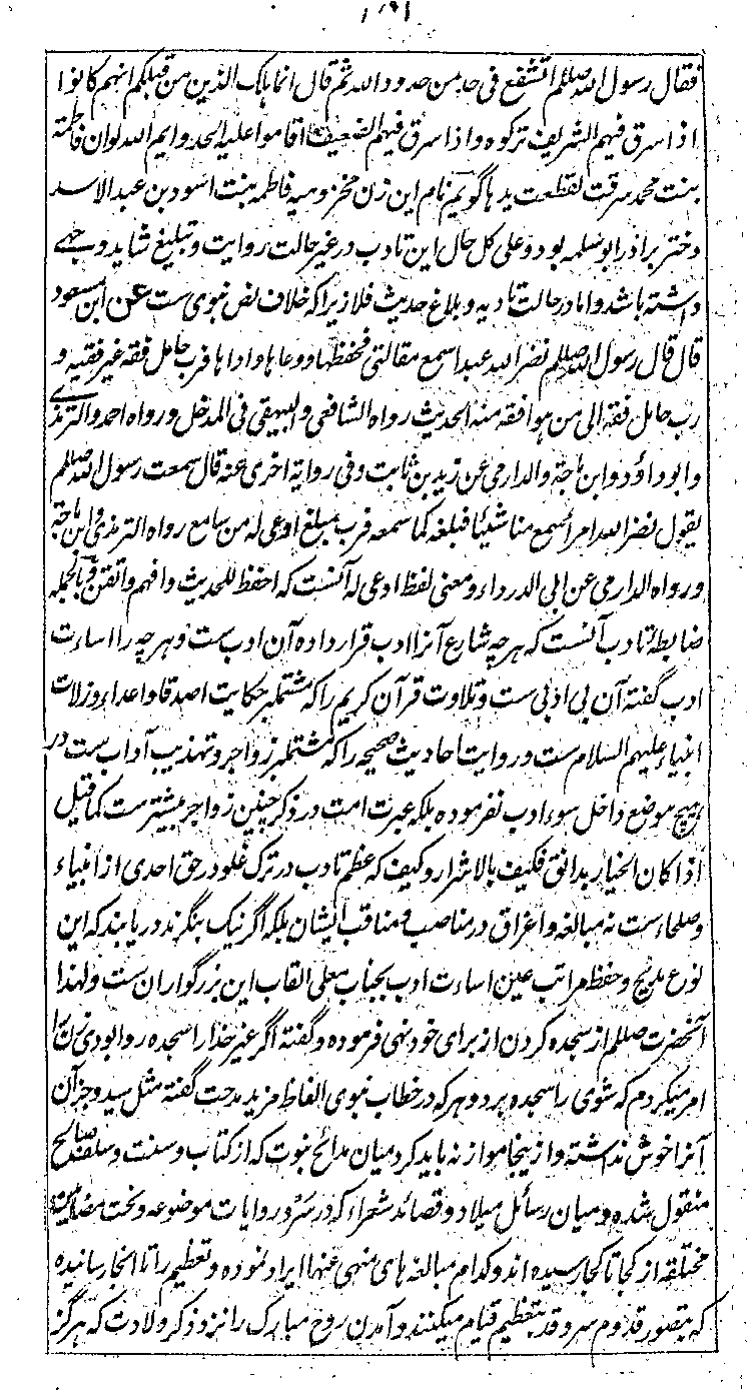 فقال رسول الله صللم اتشفع فی حد من حدود الله ثم قال انما اہلک الذین من قبلکم انہم کانوا
اذا سرق فیہم الشریف ترکوہ واذا سرق فیہم الضعیف اقاموا علیہ الحد وایم الله لو ان فاطمۃ
بنت محمد سرقت لقطعت یدہا گویم نام این زن مخزومیہ فاطمہ بنت اسود بن عبد الاسد
دختر برادر ابو سلمہ بود وعلی کل حال این تادب در غیر حالت روایت و تبلیغ شاید وجہے
داشتہ باشد واما در حالت تادیہ و بلاغ حدیث فلا زیرا کہ خلاف نص نبوی ست عن ابن مسعود
قال قال رسول الله صللم نضر الله عبدا سمع مقالتی فحفظہا ووعاہا واداہا فرب حامل فقہ غیر فقیہ و
رب حامل فقہ الی من ہو افقہ منہ الحدیث رواہ الشافعی والبیہقی فی المدخل ورواہ احمد والترمذی
وابو داؤد وابن ماجۃ والدارمی عن زید بن ثابت وفی روایۃ اخری عنہ قال سمعت رسول الله صللم
یقول نضر الله امرأ سمع منا شیئا فبلغہ کما سمعہ فرب مبلغ اوعی لہ من سامع رواہ الترمذی وابن ماجۃ
ورواہ الدارمی عن ابی الدرداء ومعنی لفظ اوعی لہ آنست کہ احفظ للحدیث وافہم واتقن وبالجملہ
ضابطۂ تادب آنست کہ ہر چہ شارع آنرا ادب قرار دادہ آن ادب ست وہر چہ را اساءت
ادب گفتہ آن بی ادبی ست وتلاوت قرآن کریم را کہ مشتمل بر حکایت اصدقا واعداء وزلات
انبیاء علیہم السلام ست وروایت احادیث صحیحہ را کہ مشتملبر زواجر وتہذیب آداب ست در
ہیچ موضع داخل سوء ادب نفرمودہ بلکہ عبرت امت در ذکر چنین زواجر بیشتر ست کما قیل
اذا کان الخیار بدانق فکیف بالاشرار وکیف کہ عظم تادب در ترک غلو در حق احدی از انبیاء
وصلحاء ست نہ مبالغہ واغراق در مناصب ومناقب ایشان بلکہ اگر نیک بنگرند دریابند کہ این
نوع مدیح وحفظ مراتب عین اساءت ادب بجناب معلی القاب این بزرگواران ست ولہذا
آنحضرت صللم از سجدہ کردن از برای خود نہی فرمودہ وگفتہ اگر غیر خدا را سجدہ روا بودی زن را
امر میکردم کہ شوی را سجدہ برد وہر کہ در خطاب نبوی الفاظ مزید مدحت گفتہ مثل سید وجز آن
آنرا خوش نداشتہ وازینجا موازنہ باید کرد میان مدائح نبوت کہ از کتاب وسنت وسلف صالح
منقول شدہ ومیان رسائل میلاد وقصائد شعراء کہ در سرد روایات موضوعہ ونحت مضامین
مختلقہ از کجا تا کجا رسیدہ اند وکدام مبالغہ ہای منہی عنہا ایراد نمودہ وتعظیم را تا انجا رسانیدہ
کہ بتصور قدوم سرو قد بتعظیم قیام میکنند وآمدن روح مبارک را نزد ذکر ولادت کہ ہرگز